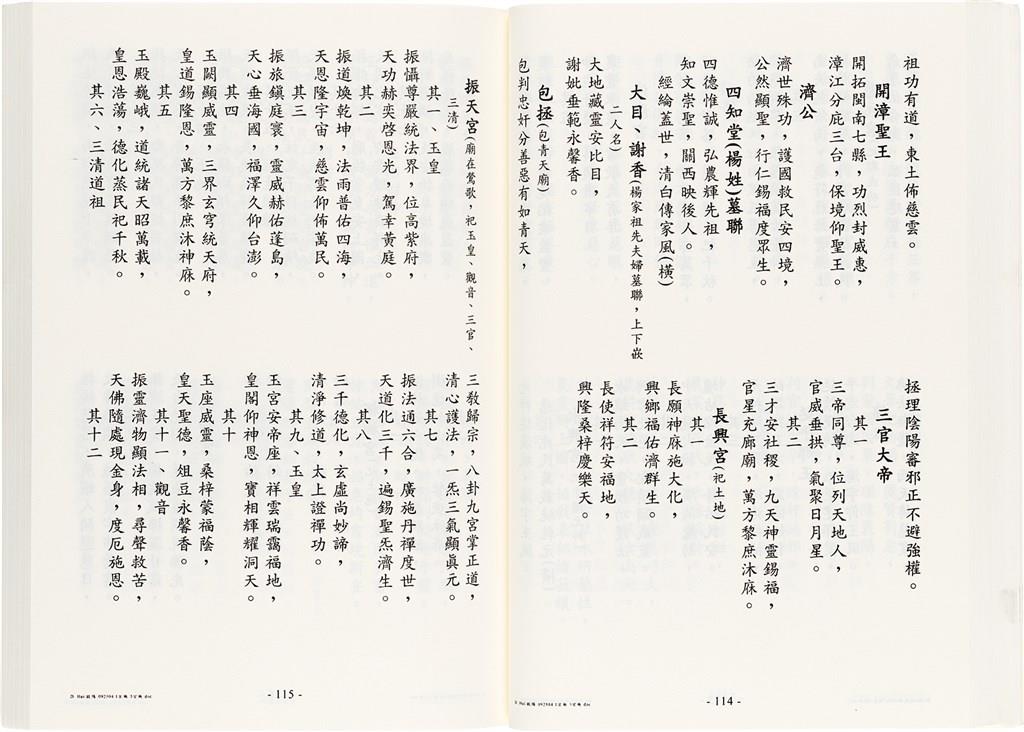 祖功有道，東土佈慈雲。
開漳聖王
開拓閩南七縣，功烈封威惠，
漳江分庇三台，保境仰聖王。
濟公
濟世殊功，護國救民安四境，
公然顯聖，行仁錫福度眾生。
四知堂(楊姓)墓聯
四德惟誠，弘農輝先祖，
知文崇聖，關西映後人。
經綸蓋世，清白傳家風(橫)
大目、謝香(楊家祖先夫婦墓聯，上下嵌
二人名)
大地藏靈安比目，
謝妣垂範永馨香。
包拯(包青天廟)
包判忠奸分善惡有如青天，
拯理陰陽審邪正不避強權。
三官大帝
其一
三帝同尊，位列天地人，
官威垂拱，氣聚日月星。
其二
三才安社稷，九天神靈錫福，
官星充廊廟，萬方黎庶沐庥。
長興宮(祀土地)
其一
長願神庥施大化，
興鄉福佑濟群生。
其二
長使祥符安福地，
興隆桑梓慶樂天。
- 114 -
振天宮(廟在鶯歌，祀玉皇、觀音、三官、
三清)
其一、玉皇
振懾尊嚴統法界，位高紫府，
天功赫奕啓恩光，駕幸黃庭。
其二
振道煥乾坤，法雨普佑四海，
天恩隆宇宙，慈雲仰佈萬民。
其三
振旅鎮庭寰，靈威赫佑蓬島，
天心垂海國，福澤久仰台澎。
其四
玉闕顯威靈，三界玄穹統天府，
皇道錫隆恩，萬方黎庶沐神庥。
其五
玉殿巍峨，道統諸天昭萬載，
皇恩浩蕩，德化蒸民祀千秋。
其六、三清道祖
三教歸宗，八卦九宮掌正道，
清心護法，一炁三氣顯眞元。
其七
振法通六合，廣施丹禪度世，
天道化三千，遍錫聖炁濟生。
其八
三千德化，玄虛尚妙諦，
清淨修道，太上證禪功。
其九、玉皇
玉宮安帝座，祥雲瑞靄福地，
皇闕仰神恩，寶相輝耀洞天。
其十
玉座威靈，桑梓蒙福蔭，
皇天聖德，俎豆永馨香。
其十一、觀音
振靈濟物顯法相，尋聲救苦，
天佛隨處現金身，度厄施恩。
其十二
- 115 -